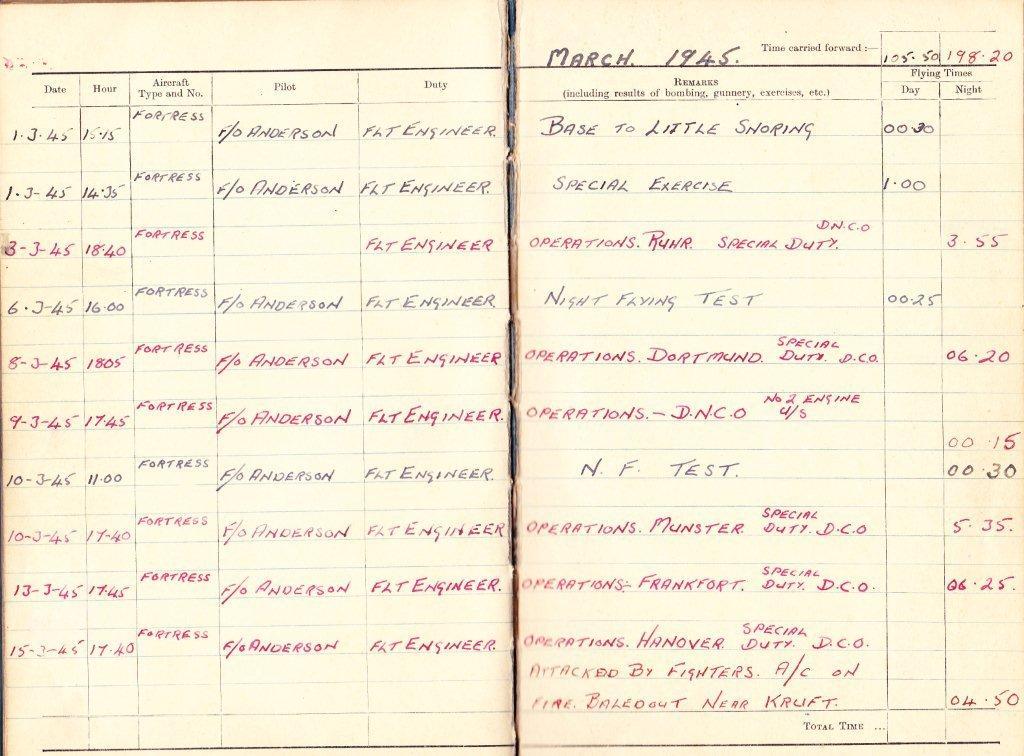 MARCH. 1945. Time carried forward :— 105.50 198.20
Date Hour Aircraft Type and No. Pilot Duty REMARKS (including results of bombing, gunnery, exercises, etc.) Flying Times Day Night
1.3.45 15.15 FORTRESS F/O ANDERSON FLT ENGINEER. BASE TO LITTLE SNORING 00.30
1.3-45 14.35 FORTRESS F/O ANDERSON FLT ENGINEER. SPECIAL EXERCISE 1.00
3-3-45 18.40 FORTRESS FLT ENGINEER OPERATIONS. RUHR. SPECIAL DUTY. D.N.C.O 3.55
6.3-45 16.00 FORTRESS F/O ANDERSON FLT ENGINEER NIGHT FLYING TEST 00.25
8-3-45 1805 FORTRESS F/O ANDERSON FLT ENGINEER OPERATIONS. DORTMUND. SPECIAL DUTY. D.C.O. 06.20
9-3-45 17.45 FORTRESS F/O ANDERSON FLT ENGINEER. OPERATIONS.- D.N.C.O NO 2 ENGINE U/S 00.15
10-3-45 11.00 FORTRESS F/O ANDERSON FLT ENGINEER. N. F. TEST. 00.30
10-3-45 17-40 FORTRESS F/O ANDERSON FLT ENGINEER OPERATIONS. MUNSTER SPECIAL DUTY. D.C.O 5.35.
13-3-45 17.45 FORTRESS F/O ANDERSON FLT ENGINEER. OPERATIONS:- FRANKFORT. SPECIAL DUTY. D.C.O. 06.25.
15-3-45 17.40 FORTRESS F/O ANDERSON FLT ENGINEER. OPERATIONS. HANOVER. SPECIAL DUTY. D.C.O.
ATTACKED BY FIGHTERS. A/C ON
FIRE. BALEDOUT NEAR KRUFT. 04.50
TOTAL TIME ...